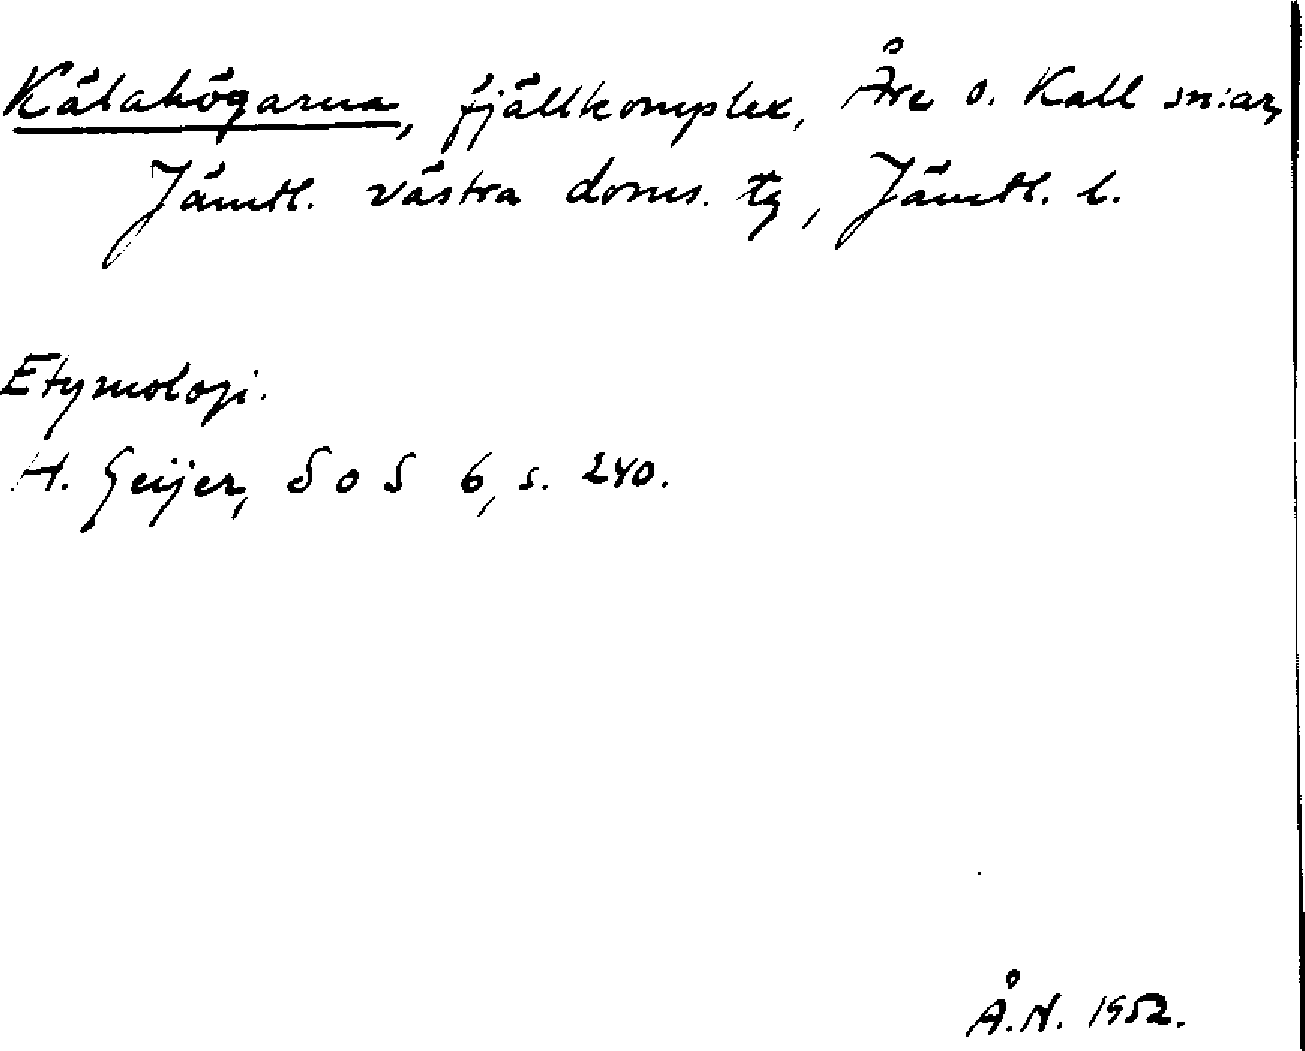 Kälahögarna, fjällkomplex, Åre o. Kall sn:ar,
Jämtl. västra doms. tg, Jämtl. l.
Etymologi.
H. Geijer, S o S 6, s. 240.
Å.N. 1952.